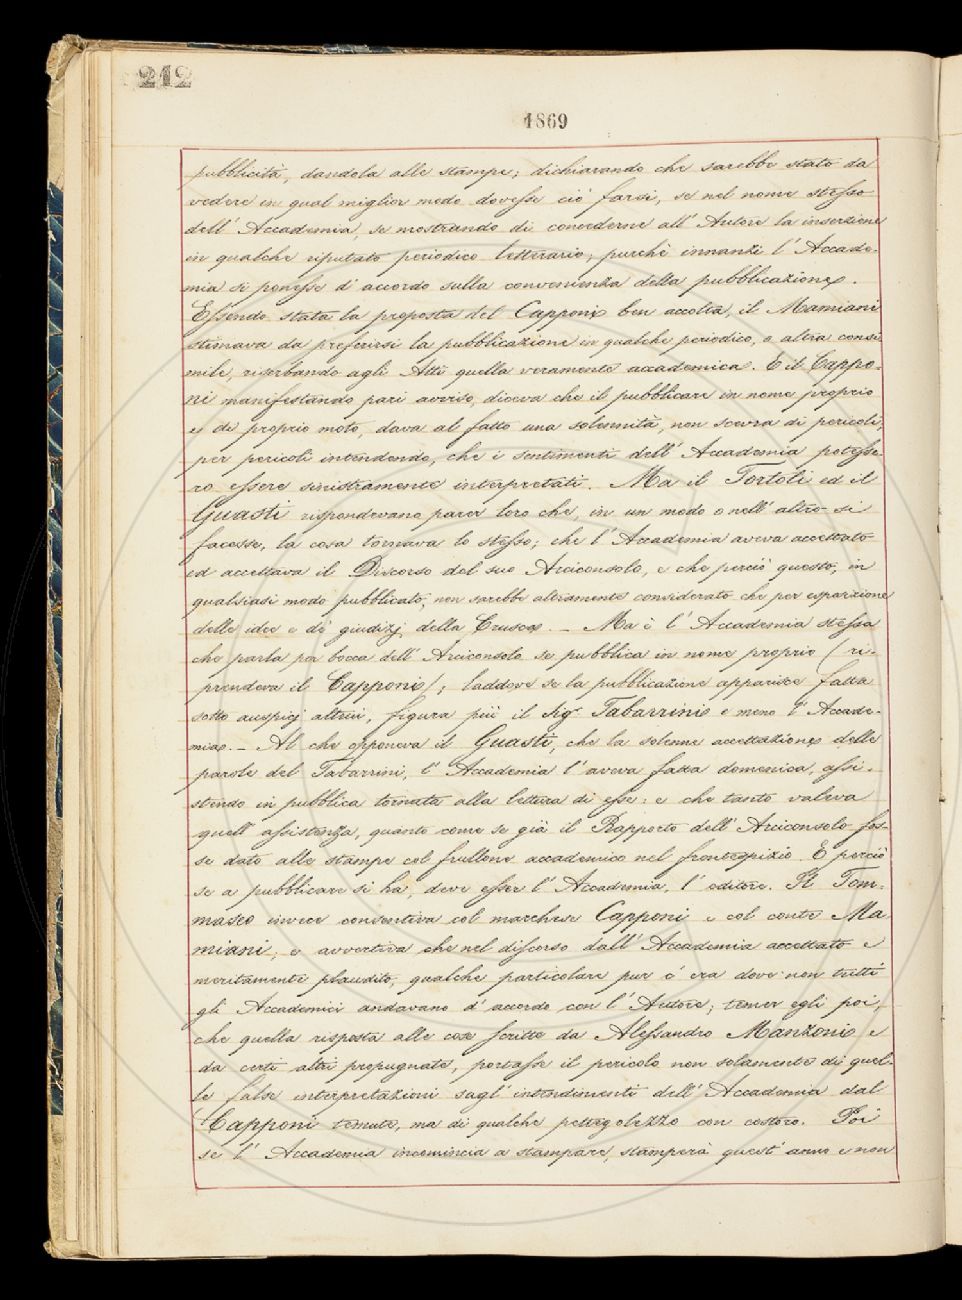 212
1869
pubblicità, dandola alle stampe; dichiarando che sarebbe stato da
vedere in qual miglior modo dovesse ciò farsi, se nel nome stesso
dell' Accademia, se mostrando di concederne all' Autore la inserzione
in qualche riputato periodico letterario; purchè innanzi l' Accade-
mia si ponesse d' accordo sulla convenienza della pubblicazione.
Essendo stata la proposta del Capponi ben accolta, il Mamiani
stimava da preferirsi la pubblicazione in qualche periodico, o altra consi
mile, riserbando agli Atti quella veramente accademica. E il Cappo-
ni manifestando pari avviso, diceva che il pubblicare in nome proprio
e di proprio moto, dava al fatto una solennità, non scevra di pericoli,
per pericoli intendendo, che i sentimenti dell' Accademia potesse-
ro essere sinistramente interpretati. Ma il Tortoli ed il
Guasti rispondevano parer loro che, in un modo o nell' altro si
facesse, la cosa tornava lo stesso; che l' Accademia aveva accettato
ed accettava il Discorso del suo Arciconsolo, e che perciò questo, in
qualsiasi modo pubblicato, non sarebbe altramente considerato che per esposizione
delle idee e de' giudizj della Crusca. _ Ma è l' Accademia stessa
che parla per bocca dell' Arciconsolo se pubblica in nome proprio (ri-
prendeva il Capponi); laddove se la pubblicazione apparisce fatta
sotto auspicj altrui, figura più il Sig.r Tabarrini e meno l' Accade-
mia. _ Al che opponeva il Guasti, che la solenne accettazione delle
parole del Tabarrini, l' Accademia l' aveva fatta domenica, assi-
stendo in pubblica tornata alla lettura di esse: e che tanto valeva
quell' assistenza, quanto come se già il Rapporto dell' Arciconsolo fos-
se dato alle stampe col frullone accademico nel frontespizio. E perciò
se a pubblicare si ha, deve esser l' Accademia, l' editore. Il Tom-
maseo invece consentiva col marchese Capponi e col conte Ma
miani; e avvertiva che nel discorso dall' Accademia accettato e
meritamente plaudito, qualche particolare pur c' era dove non tutti
gli Accademici andavano d' accordo con l' Autore; temer egli poi,
che quella risposta alle cose scritte da Alessandro Manzoni e
da certi altri propugnate, portasse il pericolo non solamente di quel-
le false interpretazioni sugl' intendimenti dell' Accademia dal
Capponi temute, ma di qualche pettegolezzo con costoro. Poi
se l' Accademia incomincia a stampare, stamperà quest' anno e non